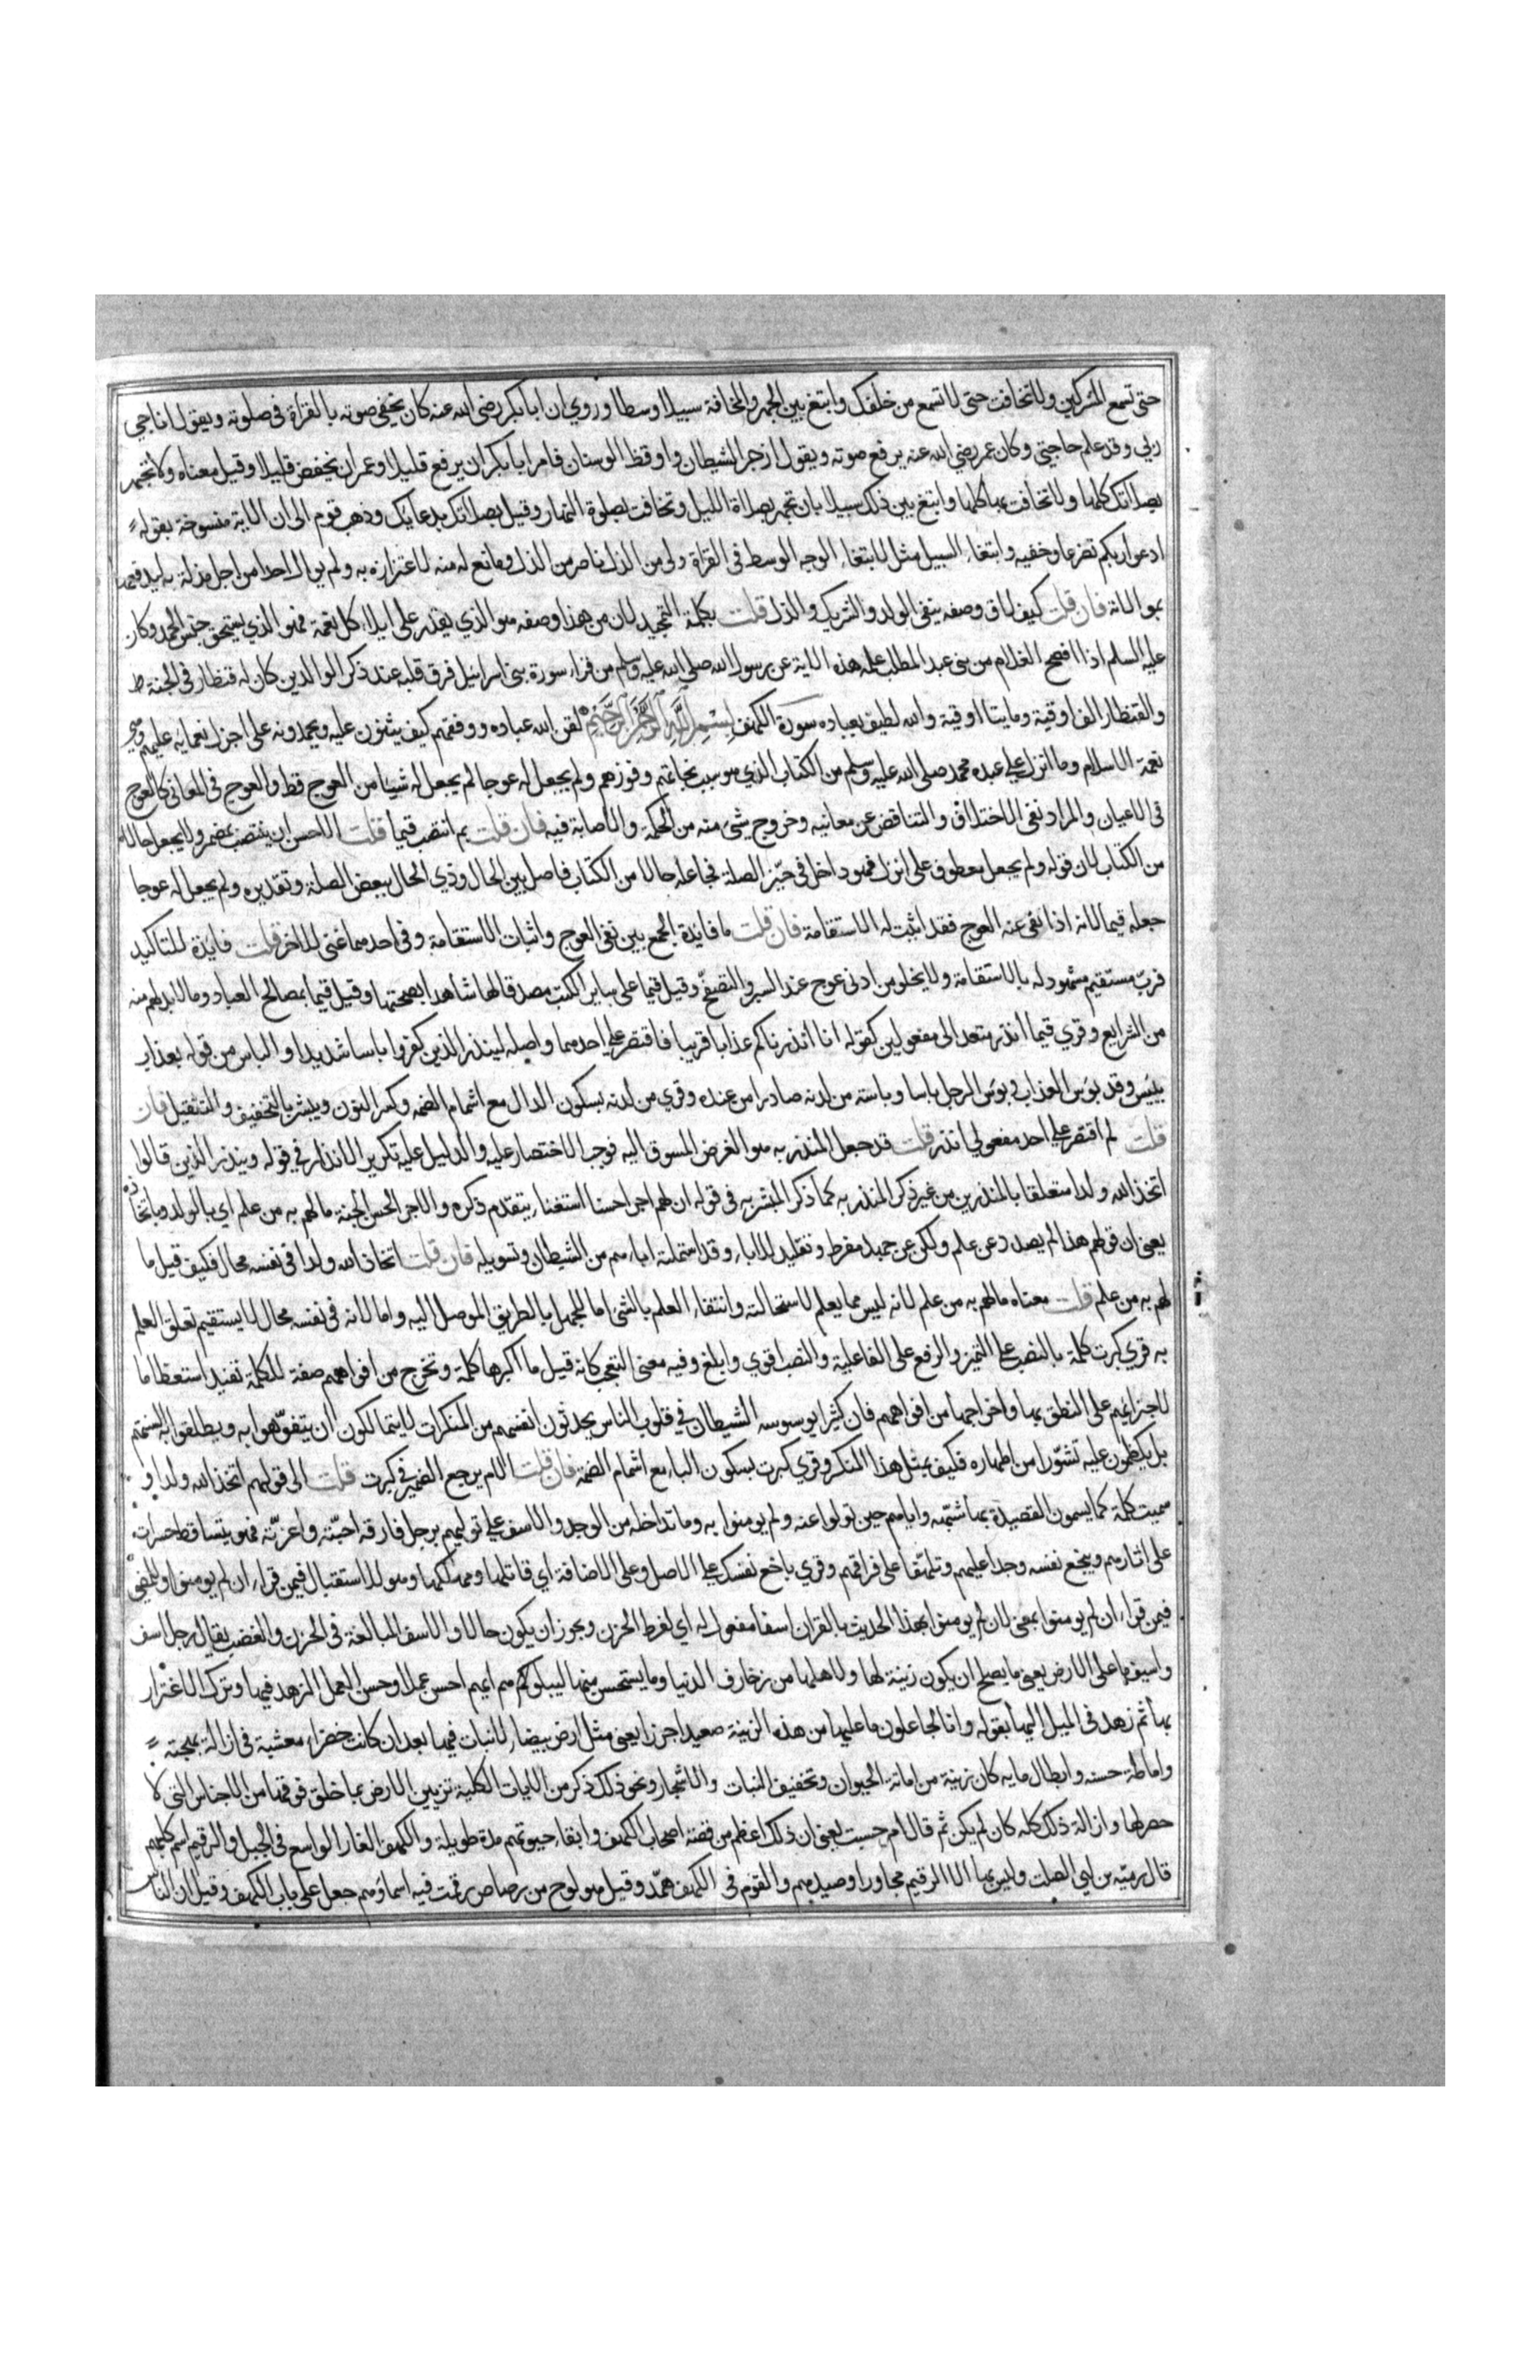 حتى تسمع المشركين ولا تخافت حتى لا تسمع من خلفك وابتغ بين الجهر والمخافتة سبيلا وسطا وروي ان ابا بكر رضي الله عنه كان يخفي صوته بالقراة في صلوته ويقول اناجي
ربي وقد علم حاجتي وكان عمر رضي الله عنه يرفع صوته ويقول ازجر الشيطان واوقظ الوسنان فامر ابا بكر ان يرفع قليلا وعمر ان يخفض قليلا وقيل معناه ولا تجهر
بصلاتك كلها ولا تخافت بها كلها وابتغ بين ذلك سبيلا بان تجهر بصلاة الليل وتخافت بصلوة النهار وقيل بصلاتك بدعايك وذهب قوم الى ان الاية منسوخة بقوله
ادعوا ربكم تضرعا وخفيه وابتغاء السبيل مثل لابتغاء الوجه الوسط في القراة ولي من الذل ناصر من الذل ومانع له منه لاعتزازه به ولم يوال احدا من اجل مذلة به ليدفعها
بموالاته فان قلت كيف لاق وصفه بنفي الولد والشريك والذل قلت بكلمة التحميد لان من هذا وصفه هو الذي يقدر على ايلاء كل نعمة فهو الذي يستحق جنس الحمد وكان
عليه السلم اذا افصح الغلام من بني عبد المطلب علمه هذه الاية عن رسول الله صلى الله عليه وسلم من قراء سورة بني اسرائيل فرق قلبه عند ذكر الوالدين كان له قنطار في الجنة ط
والقنطار الف اوقية ومايتا اوقية والله لطيف بعباده سورة الكهف بسم الله الرحمن الرحيم لقن الله عباده ووفقهم كيف يثنون عليه ويحمدونه على اجزل نعمايه عليهم وهي
نعمة الاسلام وما انزل على عبده محمد صلى الله عليه وسلم من الكتاب الذي هو سبب نجاتهم وفوزهم ولم يجعل له عوجا لم يجعل له شيئا من العوج قط والعوج في المعاني كالعوج
في الاعيان والمراد نفي الاختلاف والتناقض عن معانيه وخروج شيء منه من الحكمة والاصابة فيه فان قلت بم انتصب قيما قلت الاحسن ان ينتصب بمضمر ولا يجعل حالا
من الكتاب لان قوله ولم يجعل معطوف على انزل فهو داخل في حيّز الصلة فجاعله حالا من الكتاب فاصل بين الحال وذي الحال ببعض الصلة وتقديره ولم يجعل له عوجا
جعله قيما لانه اذا نفى عنه العوج فقد اثبت له الاستقامة فان قلت ما فايدة الجمع بين نفي العوج واثبات الاستقامة وفي احدهما غنى للاخر قلت فايدة للتاكيد
فربّ مستقيم مشهود له بالاستقامة ولا يخلو من ادنى عوج عند السبر والتصفّح وقيل قيما على ساير الكتب مصدقا لها شاهدا بصحتها وقيل قيما بمصالح العباد وما لا بد لهم منه
من الشرايع وقري قيما انذر متعد الى مفعولين كقوله انا انذرناكم عذابا قريبا فاقتصر على احدهما واصله لينذر الذين كفروا باسا شديدا والباس من قوله بعذاب
بيئس وقد بوس العذاب وبوس الرجل باسا وباسته من لدنه صادرا من عنده وقري من لدنه بسكون الدال مع اشمام الضمه وكسر النون ويبشر بالتخفيف والتثقيل فان
قلت لم اقتصر على احد مفعولي انذر قلت قد جعل المنذر به هو الغرض المسوق اليه فوجب الاختصار عليه والدليل عليه تكرير الانذار في قوله وينذر الذين قالوا
اتخذ الله ولدا متعلقا بالمنذرين من غير ذكر المنذر به كما ذكر المبشر به في قوله ان لهم اجرا حسنا استغناء بتقدم ذكره والاجر الحسن الجنة ما لهم به من علم اي بالولد وباتخاذه
يعني ان قولهم هذا لم يصدر عن علم ولكن عن جهل مفرط وتقليد للاباء وقد استملته اباءهم من الشيطان وتسويله فان قلت اتخاذ الله ولدا في نفسه محال فكيف قيل ما
لهم به من علم قلت معناه ما لهم به من علم لانه ليس مما يعلم لاستحالته وانتفاء العلم بالشئ اما للجهل بالطريق الموصل اليه واما لانه في نفسه محال لا يستقيم تعلق العلم
به قري كبرت كلمة بالنصب على التميز والرفع على الفاعلية والنصب اقوي وابلغ وفيه معنى التعجب كانه قيل ما اكبرها كلمة وتخرج من افواههم صفة للكلمة تفيد استعظاما
لاجترايهم على النطق بها واخراجها من افواههم فان كثيرا يوسوسه الشيطان في قلوب الناس يحدثون انفسهم من المنكرات لا يتمالكون ان يتفوّهوا به ويطلقوا به السنتهم
بل يكظمون عليه تشوّرا من اظهاره فكيف بمثل هذا المنكر وقري كبرت بسكون الباء مع اشمام الضمة فان قلت الام يرجع الضمير في كبرت قلت الى قولهم اتخذ الله ولدا و
سميت كلمة كما يسمون القصيدة بها شبّهه واياهم حين تولوا عنه ولم يومنوا به وما تداخله من الوجد والاسف على توليهم برجل فارقه احبّته واعزّته فهو يتساقط حسرات
على اثارهم ويبخع نفسه وجدا عليهم وتلهّفا على فراقهم وقري باخع نفسك على الاصل وعلى الاضافة اي قاتلها ومهلكها وهو للاستقبال فيمن قراء ان لم يومنوا وللمضي
فيمن قراء ان لم يومنوا بمعنى لان لم يومنوا بهذا الحديث بالقران اسفا مفعول له اي لفرط الحزن ويجوز ان يكون حالا والاسف المبالغة في الحزن والغضب يقال رجل اسف
واسيف ما على الارض يعني ما يصلح ان يكون زينة لها ولاهلها من زخارف الدنيا وما يستحسن منها ليبلوكم ايهم احسن عملا وحسن العمل الزهد فيها وترك الاغترار
بها ثم زهد في الميل اليها بقوله وانا لجاعلون ما عليها من هذه الزينة صعيدا جرزا يعني مثل ارض بيضاء لا نبات فيها بعد ان كانت خضراء معشبة في ازالة بهجته
واماطة حسنه وابطال ما به كان زينة من اماتة الحيوان وتجفيف النبات والاشجار ونحو ذلك ذكر من الايات الكلية تزيين الارض بما خلق فوقها من الاجناس التي لا
حصر لها وازالة ذلك كله كان لم يكن ثم قال ام حسبت يعني ان ذلك اعظم من قصة اصحاب الكهف وابقاء حيوتهم مدة طويلة والكهف الغار الواسع في الجبل والرقيم اسم كلبهم
قال اميّه بن ابي الصلت وليس بها الا الرقيم مجاورا وصيدهم والقوم في الكهف همّد وقيل هو لوح من رصاص رقمت فيه اسماؤهم جعل على باب الكهف وقيل ان الناس